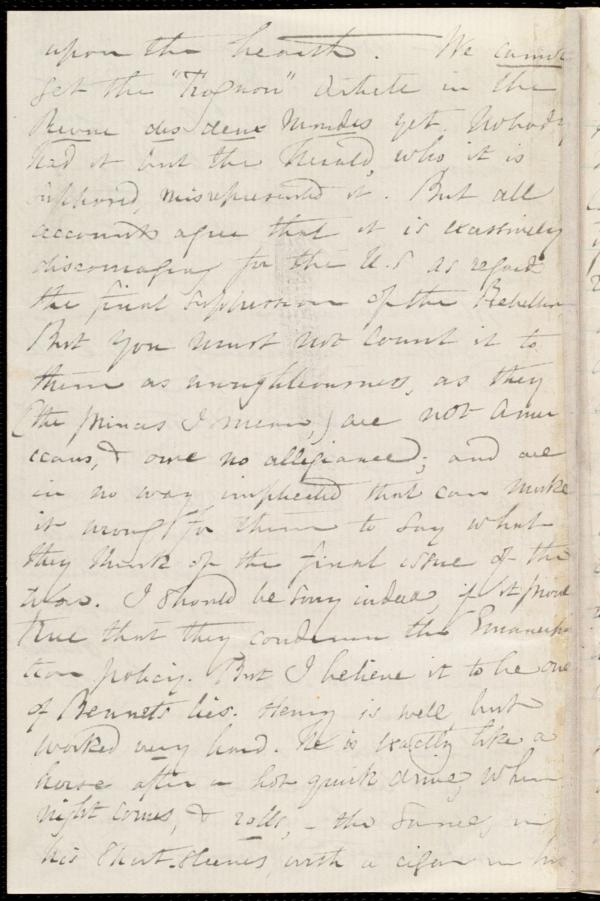 upon the hearth. We cannot
get the "Trognon" Article in the
Revue des deux Mondes yet. Nobody
had it but the Herald, who, it is
supposed, misrepresented it. But all
accounts agree that it is excessively
discouraging for the U.S as regards
the final suppression of the Rebellion
But you must not count it to
them as unrighteousness, as they
(the princes I mean,) are not Amer
icans, & owe no allegiance; and are
in no way implicated that can make
it wrong for them to say what
they think of the final issue of the
war. I should be sorry indeed, if it prove
true that they condemn the Emancipa
tion policy. But I believe it to be one
of Bennets lies. Henry is well, but
worked very hard. He is exactly like a
horse after a hot quick drive, when
night comes, & rolls, - the same, in
his shirt-sleeves, with a cigar in his